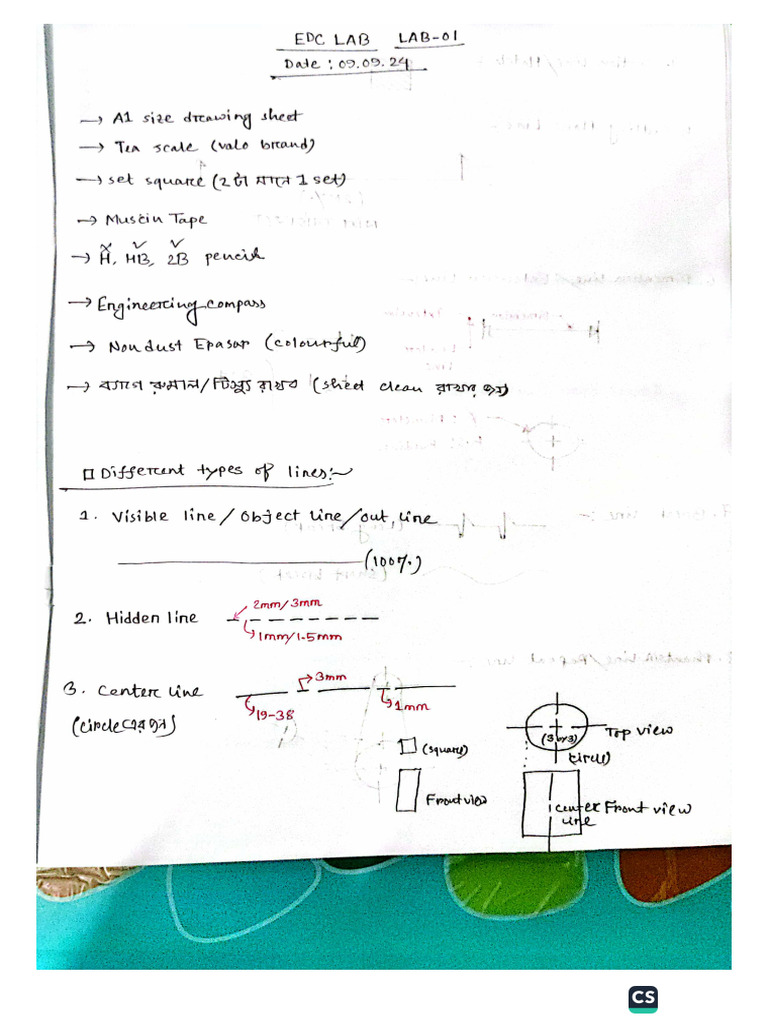 EDC LAB LAB-01
Date : 09.09.24
→ A1 size drawing sheet
→ Tea scale (valo brand)
→ set square (2টা মানে 1 set)
→ Muscin Tape
→ H, HB, 2B pencil
→ Engineering compass
→ Nondust Epasar (colourful)
→ ব্যাগে রুমাল/টিস্যু রাখব (sheet clean রাখার জন্য)
Different types of lines:~
1. Visible line/Object line/out line
(100%)
2mm/3mm
2. Hidden line
1mm/1.5mm
3mm
3. Center line
19-38
1mm
(circle এর জন্য)
(square)
(3 by 3)
Top view
(circle)
Front view
center line
Front view
CS